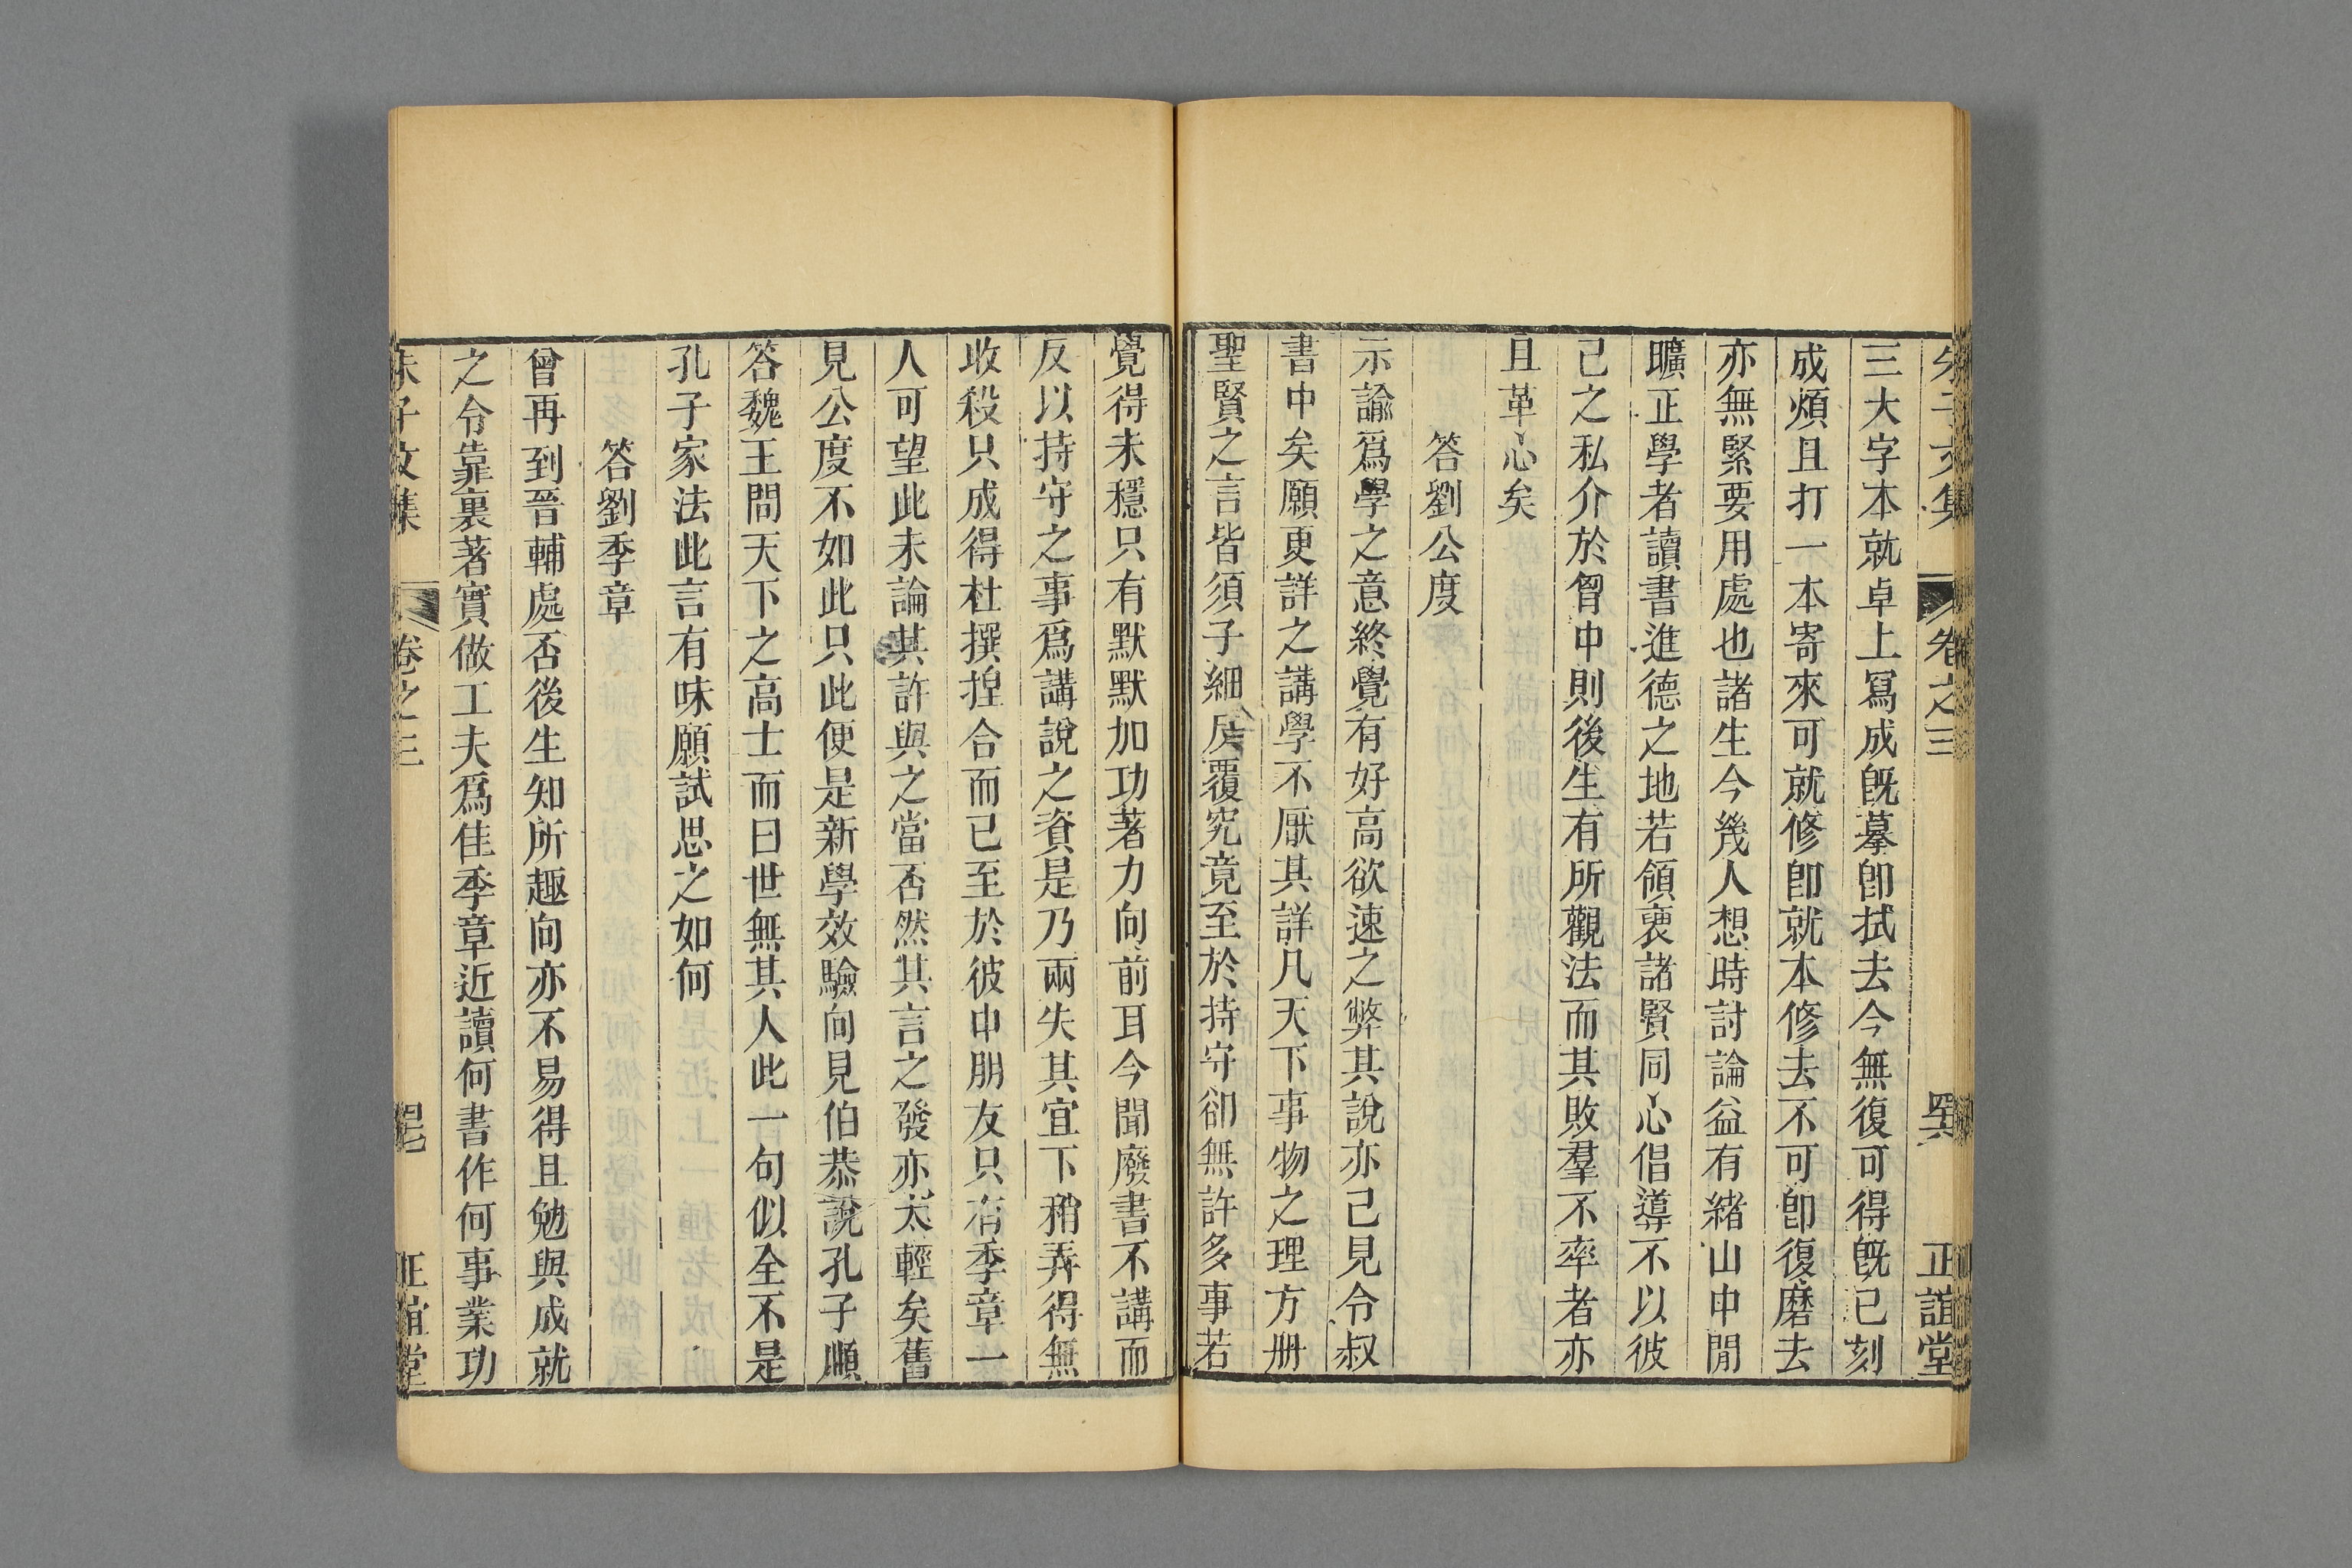 朱子文集 卷之三 正誼堂
三大字本就卓上冩成旣摹卽拭去今無復可得旣已刻
成煩且打一本寄來可就修卽就本修去不可卽復磨去
亦無緊要用處也諸生今幾人想時討論益有緒山中閒
曠正學者讀書進德之地若領袠諸賢同心倡導不以彼
己之私介於胷中則後生有所觀法而其敗羣不率者亦
且革心矣
答劉公度
示諭爲學之意終覺有好高欲速之弊其說亦已見令叔
書中矣願更詳之講學不厭其詳凡天下事物之理方册
聖賢之言皆須子細反覆究竟至於持守卻無許多事若
覺得未穩只有默默加功著力向前耳今聞廢書不講而
反以持守之事爲講說之資是乃兩失其宜下稍弄得無
收殺只成得杜撰揑合而已至於彼中朋友只有季章一
人可望此未論其許與之當否然其言之發亦太輕矣舊
見公度不如此只此便是新學效驗向見伯恭說孔子順
答魏王問天下之高士而曰世無其人此一句似全不是
孔子家法此言有味願試思之如何
答劉季章
曾再到晉輔處否後生知所趣向亦不易得且勉與成就
之令靠裏著實做工夫爲佳季章近讀何書作何事業功
朱子文集 卷之三 正誼堂